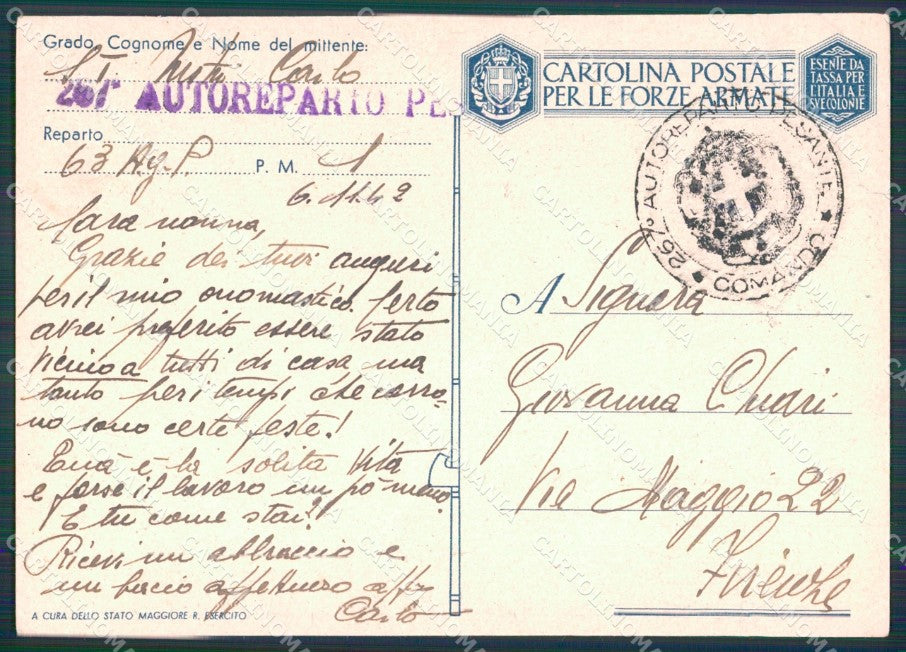 Grado, Cognome e Nome del mittente:
Carlo
267° AUTOREPARTO PE
Reparto
63 Ag. P. P. M. 1
6.11.42
Cara nonna,
Grazie dei tuoi auguri
per il mio onomastico. Certo
avrei preferito essere stato
vicino a tutti di casa ma
tanto per i tempi che corro-
no sono certe feste!
è la solita vita
e forse il lavoro un pò meno.
E tu come stai?
Ricevi un abbraccio e
un bacio affettuoso aff
Carlo
A CURA DELLO STATO MAGGIORE R. ESERCITO
CARTOLINA POSTALE
PER LE FORZE ARMATE
ESENTE DA
TASSA PER
L'ITALIA E
SUE COLONIE
267° AUTOREPARTO PESANTE ★ COMANDO ★
A Signora
Giovanna Chiari
Via Maggio 22
Firenze
CARTOLINOMANIA